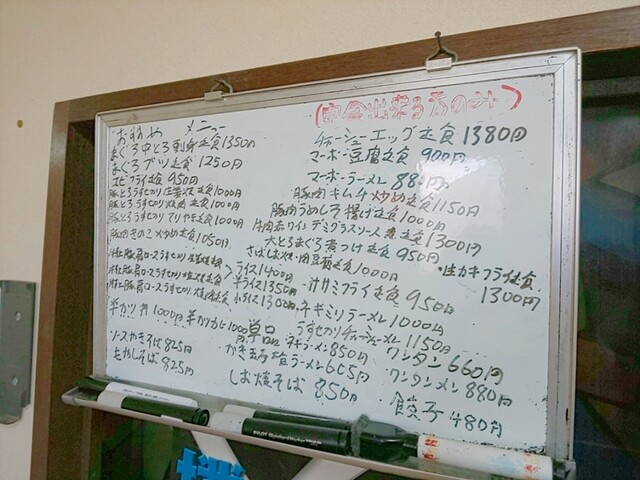 おすすめ メニュー
まぐろ中とろ刺身定食1350円
まぐろブツ定食 1250円
エビフライ定食 950円
豚とろうすぎり 生姜焼 定食1000円
豚とろうすぎり 焼肉 定食1000円
豚とろうすぎり テリヤキ定食1000円
豚肉きのこ炒め定食1050円
特上豚肩ロースうすぎり生姜焼定食
特上豚肩ロースうすぎり 定食
特上豚肩ロースうすぎり 焼肉定食
ライス1400円
半ライス1350円
小ライス1300円
半カツ丼1000円 半カツカレー1000円
ソースやきそば825円
もやしそば 825円
単品
チャーシューエッグ定食1380円
マーボー豆腐定食 900円
マーボーラーメン 880円
豚肉キムチ炒め定食1150円
豚肉うめしそ揚げ定食1000円
牛肉赤ワインデミグラスソース煮定食1300円
大とろまぐろ煮つけ定食950円
さばしお焼・肉豆腐定食1000円
・生カキフライ定食
1300円
ササミフライ定食950円
ネギミソラーメン1000円
うすぎりチャーシューメン1150円
ネギラーメン850円
ワンタン660円
ワンタンメン880円
ラーメン605円
しお焼そば 850円
餃子480円
PILOT